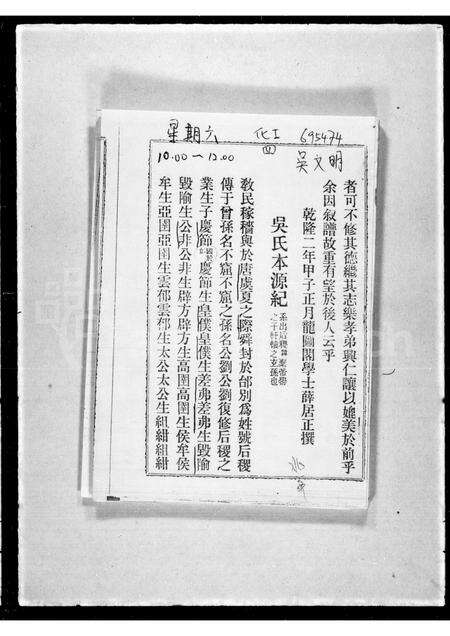 星期六 化工 695474
四
10.00 — 12.00 吳文明
者可不修其德繼其志樂孝弟興仁讓以媲美於前乎
余因叙譜故重有望於後人云乎
乾隆二年甲子正月龍圖閣學士薛居正撰
吳氏本源紀
系出后稷
之子軒轅之玄孫也
教民稼穡興於唐虞夏之際舜封於邰別為姓號后稷
傳于曾孫名不窋不窋之孫名公劉公劉復修后稷之
業生子慶節慶節生皇僕皇僕生差弗差弗生毀隃
毀隃生公非公非生辟方辟方生高圉高圉生侯牟侯
牟生亞圉亞圉生雲都雲都生太公太公生組紺組紺